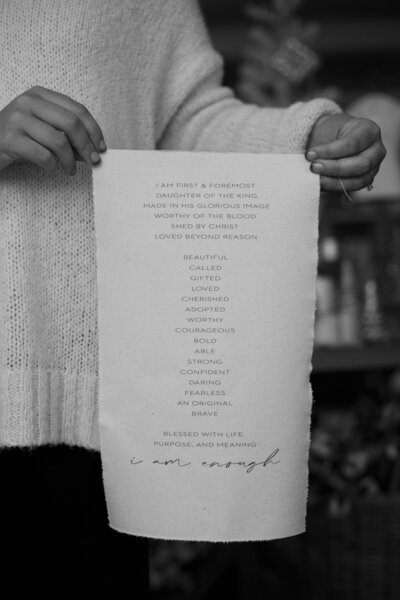 I AM FIRST & FOREMOST
DAUGHTER OF THE KING
MADE IN HIS GLORIOUS IMAGE
WORTHY OF THE BLOOD
SHED BY CHRIST
LOVED BEYOND REASON
BEAUTIFUL
CALLED
GIFTED
LOVED
CHERISHED
ADOPTED
WORTHY
COURAGEOUS
BOLD
ABLE
STRONG
CONFIDENT
DARING
FEARLESS
AN ORIGINAL
BRAVE
BLESSED WITH LIFE,
PURPOSE, AND MEANING
i am enough